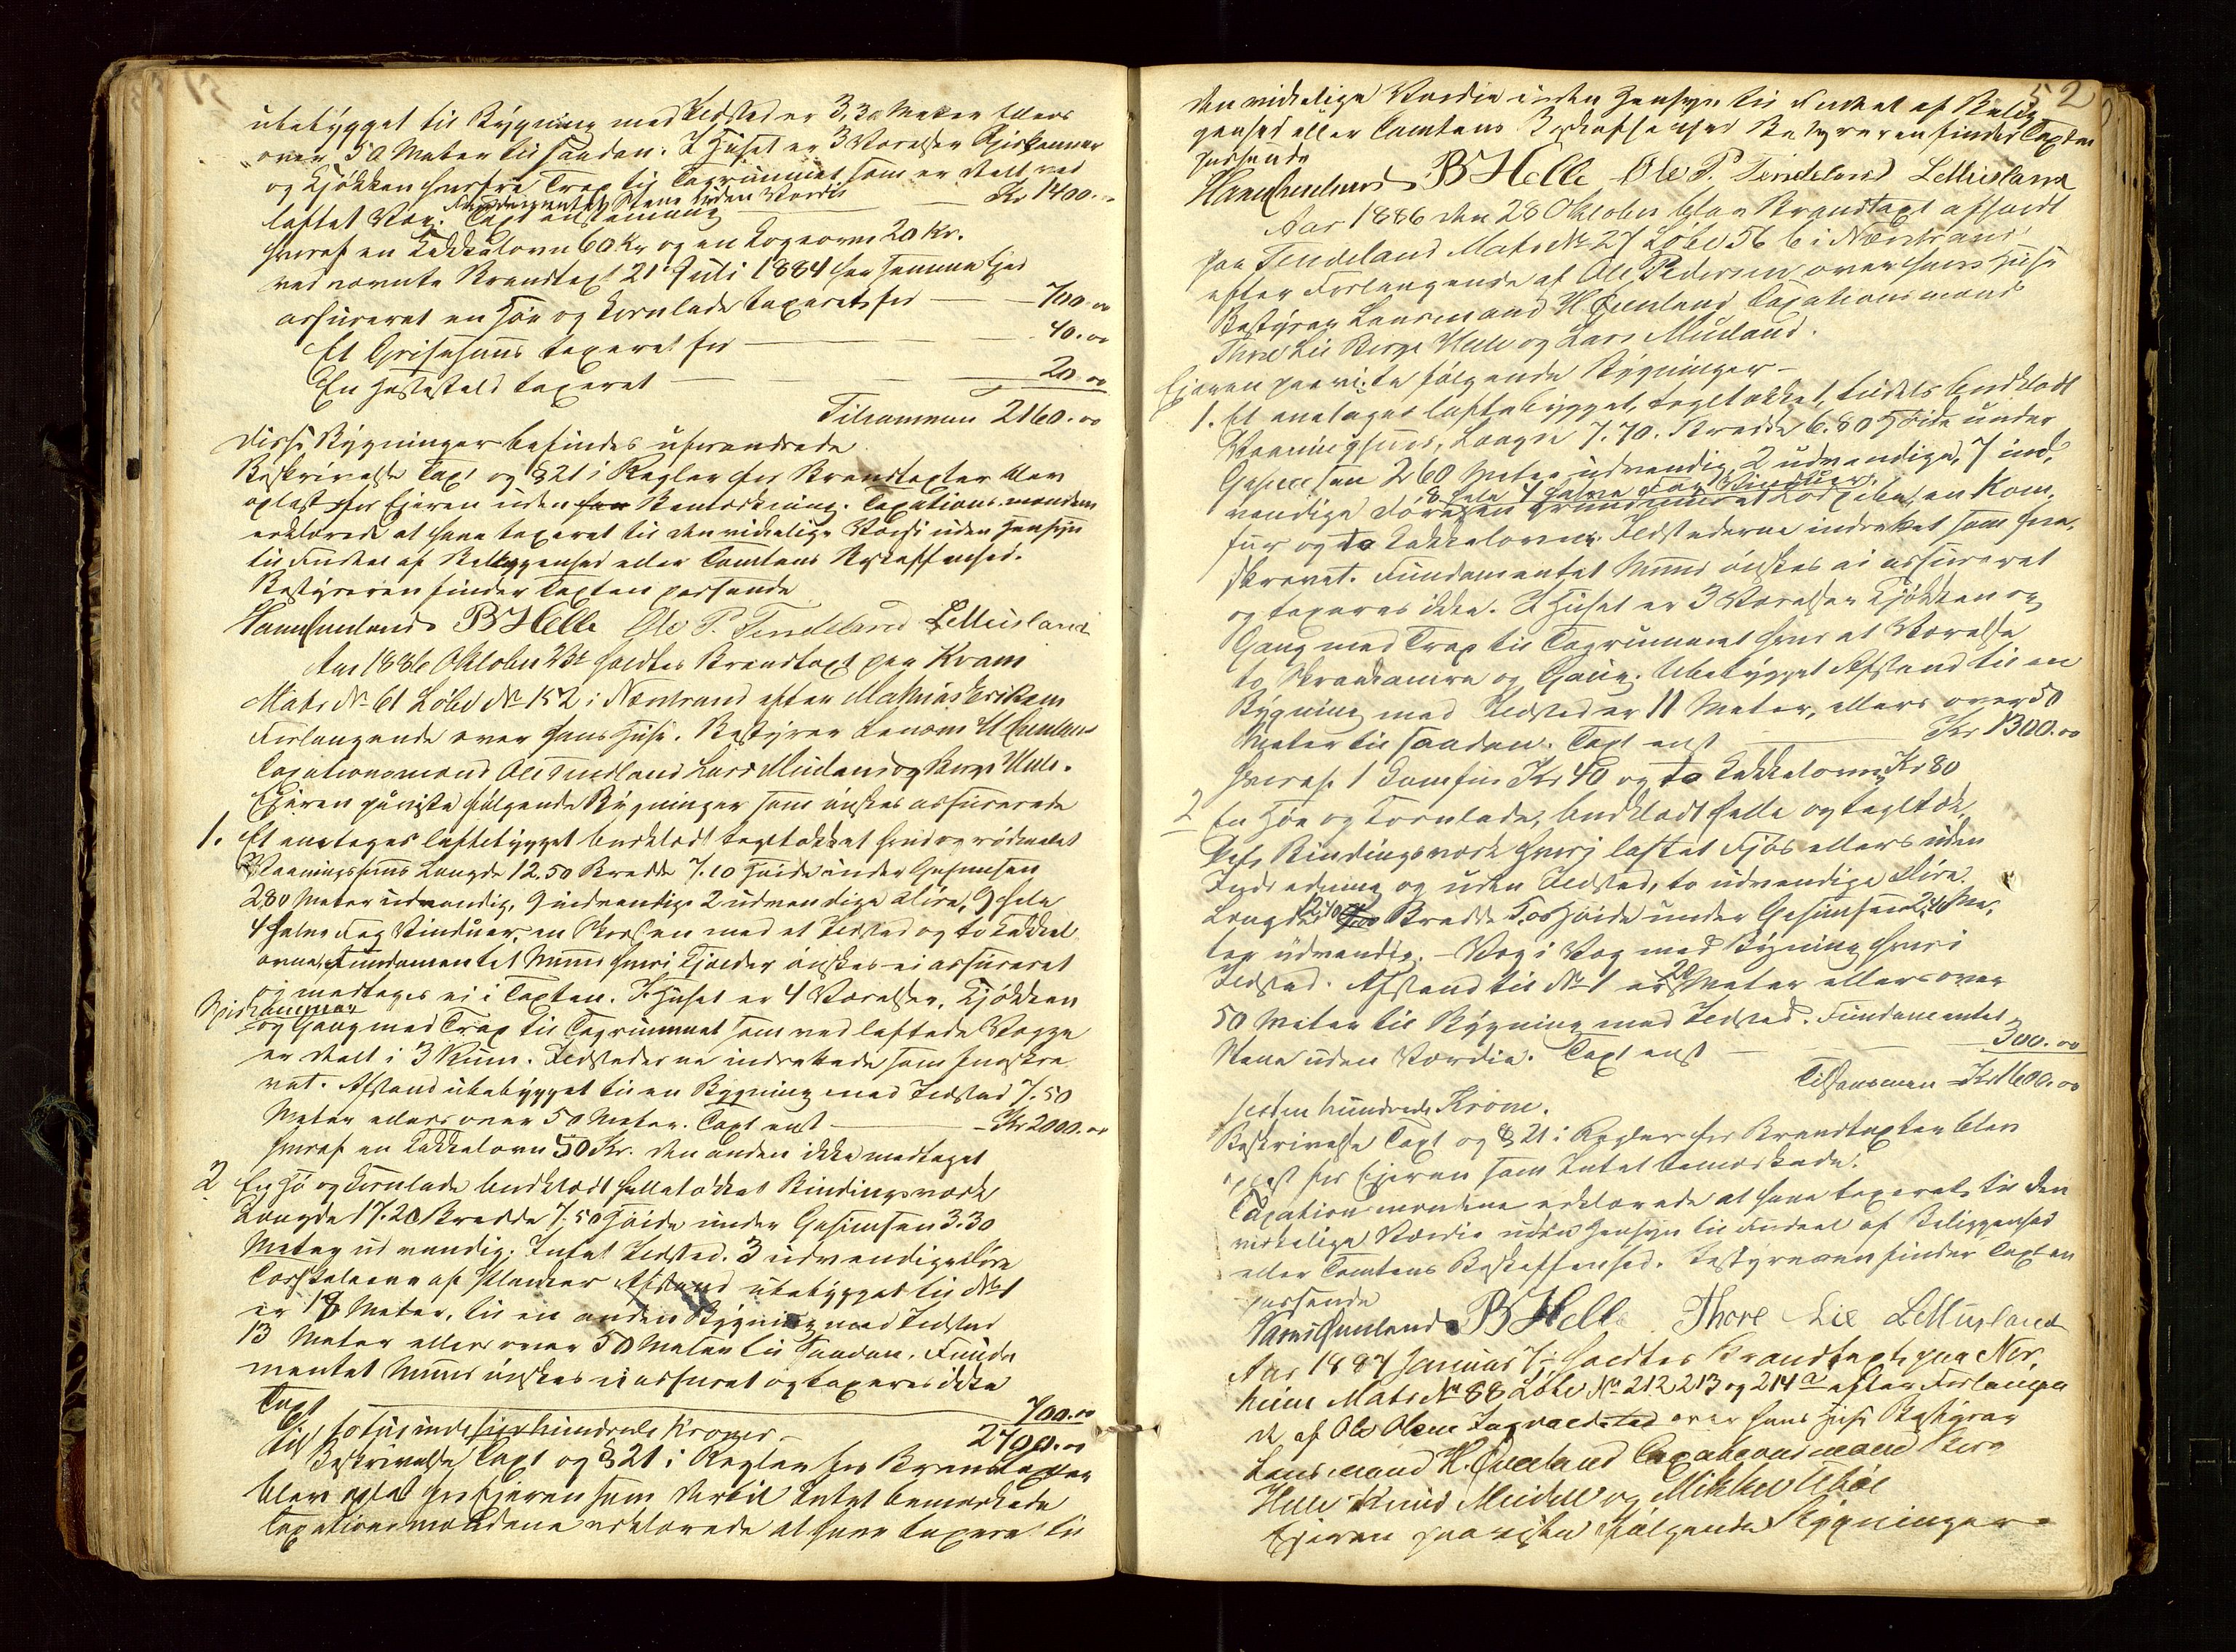 ubebygget til Bygning med Ildsted er 3,30 Meter ellers
over 50 Meter til saadan. I Huset er 3 Værelser Spiskammer
og Kjøkken hvorfra Trap til Tagrummet som er delt ved
loftet Væg. Fundamentet Stene uden Værdi Taxt enstemmig Kr 1400.
hvoraf en Kakkelovn 60 Kr og en Kogeovn 20 Kr.
ved nævnte Brandtaxt 21 Juli 1884 har samme Ejer
assureret en Høe og Kornlade taxeret for 700.00
Et Grisehuus taxeret for 40.00
En Hestestald taxeret 20.00
Tilsammen 2160.00
disse Bygninger befindes uforandrede
Beskrivelse Taxt og § 21 i Regler for Brandtaxter blev
oplæst for Ejeren uden Bemærkning. Taxationsmændene
erklærede at have taxeret til den virkelige Værdi uden Hensyn
til Fordeel af Beliggenhed eller Tomtens Beskaffenhed.
Bestyreren finder Taxten passende
B Helle Ole P. Tendeland
Aar 1886 Oktober 23de holdtes Brandtaxt paa Kvam
Matr No 61 Løbe No 152 i Nerstrand efter Mathias Eriksens
Forlangende over hans Huse. Bestyrer Lensm
Taxationsmænd Ole Tendland Lars og Berge Helle.
Ejeren paaviste følgende Bygninger som ønskes assurerede
1. Et enetages loftebygget bordklædt tegltækket hvid og rødmalet
Vaaningshuus Længde 12.50 Bredde 7.10 Høide under Gesimsen
2.80 Meter udvendig, 9 indvendige 2 udvendige Døre, 9 hele
4 halve Fag Vinduer, en Skorsten med et Ildsted og to Kakkel
ovne, Fundamentet Muur hvori Kjælder ønskes ei assureret
og medtages ei i Taxten. I Huset er 4 Værelser, Kjøkken
Spiskammer
og Gang med Trap til Tagrummet som ved loftede Vægge
er delt i 3 Rum. Ildstederne indrettede som foreskre
vet. Afstand ubebygget til en Bygning med Ildsted 7.50
Meter ellers over 50 Meter. Taxt enst Kr 2000.00
hvoraf en Kakkelovn 50 Kr. den anden ikke medtaget
2 En Hø og Kornlade bordklædt helletækket Bindingsværk
Længde 17.20 Bredde 7.50 Høide under Gesimsen 3.30
Meter udvendig. Intet Ildsted. 3 udvendige Døre
af Planker Afstand ubebygget til No 1
er 18 Meter, til en anden Bygning med Ildsted
13 Meter ellers over 50 Meter til saadan. Funda
mentet Muur ønskes ei assureret og taxeres ikke
Taxt 700.00
til to tusinde syv hundrede Kroner 2700.00
Beskrivelse Taxt og § 21 i Regler for Brandtaxter
blev oplæst for Ejeren som dertil Intet bemærkede
Taxationsmændene erklærede at have taxeret til
52
den virkelige Værdie uden Hensyn til Fordeel af Belig
genhed eller Tomtens Beskaffenhed Bestyreren finder Taxten
passende
B Helle Ole P. Tendeland
Aar 1886 den 28 Oktober blev Brandtaxt afholdt
paa Tendeland Matr No 27 Løbe 56 b i Nerstrand
efter Forlangende af Ole Pedersen over hans Huse
Bestyrer Lensmand H Qvenland Taxationsmænd
Thore Lie Berge Helle og Lars
Ejeren paaviste følgende Bygninger
1. Et enetages loftebygget, tegltækket, tildels bordklædt
Vaaningshuus. Længde 7.70. Bredde 6.80 Høide under
Gesimsen 2 60 Meter udvendig, 2 udvendige, 7 ind
8 hele 4 halve Fag Vinduer.
vendige Døre, en Skorstens, en Kom
fur og to Kakkelovne. Ildstederne indrettet som fore
skrevet. Fundamentet Muur ønskes ei assureret
og taxeres ikke. I Huset er 3 Værelser Kjøkken og
Gang med Trap til Tagrummet hvor et Værelse
to Skraakamre og Gang. Ubebygget Afstand til en
Bygning med Ildsted er 11 Meter, ellers over 50
Meter til saadan. Taxt enst Kr 1300.00
hvoraf 1 Komfur Kr 40 og to Kakkelovne Kr 80
2 En Høe og Kornlade, bordklædt helle og tegltæk
Bindingsværk hvori loftet Fjøs ellers uden
Indredning og uden Ildsted, to udvendige Døre.
Længde Bredde 5.05 Høide under Gesimsen 2,40 Me
ter udvendig. Væg i Væg med Bygning hvori
Ildsted. Afstand til No 1 er 20 Meter ellers over
50 Meter til Bygning med Ildsted. Fundamentet
Stene uden Værdie. Taxt enst 300.00
Tilsammen Kr 1600.00
sexten hundrede Kroner.
Beskrivelse Taxt og § 21 i Regler for Brandtaxter blev
oplæst for Ejeren som Intet bemærkede.
Taxationsmændene erklærede at have taxeret til den
virkelige Værdie uden Hensyn til Fordeel af Beliggenhed
eller Tomtens Beskaffenhed. Bestyreren finder Taxten
passende
B Helle Thore Lie
Aar 1887 Januar 7de holdtes Brandtaxt paa Ner
heim Matr No 88 Løbe No 212 213 og 214 a efter Forlangen
de af Ole Olsen over hans Huse Bestyrer
Lensmand H. Qvenland Taxationsmænd Berge
Helle Knud og Mikkel
Ejeren paaviste følgende Bygninger